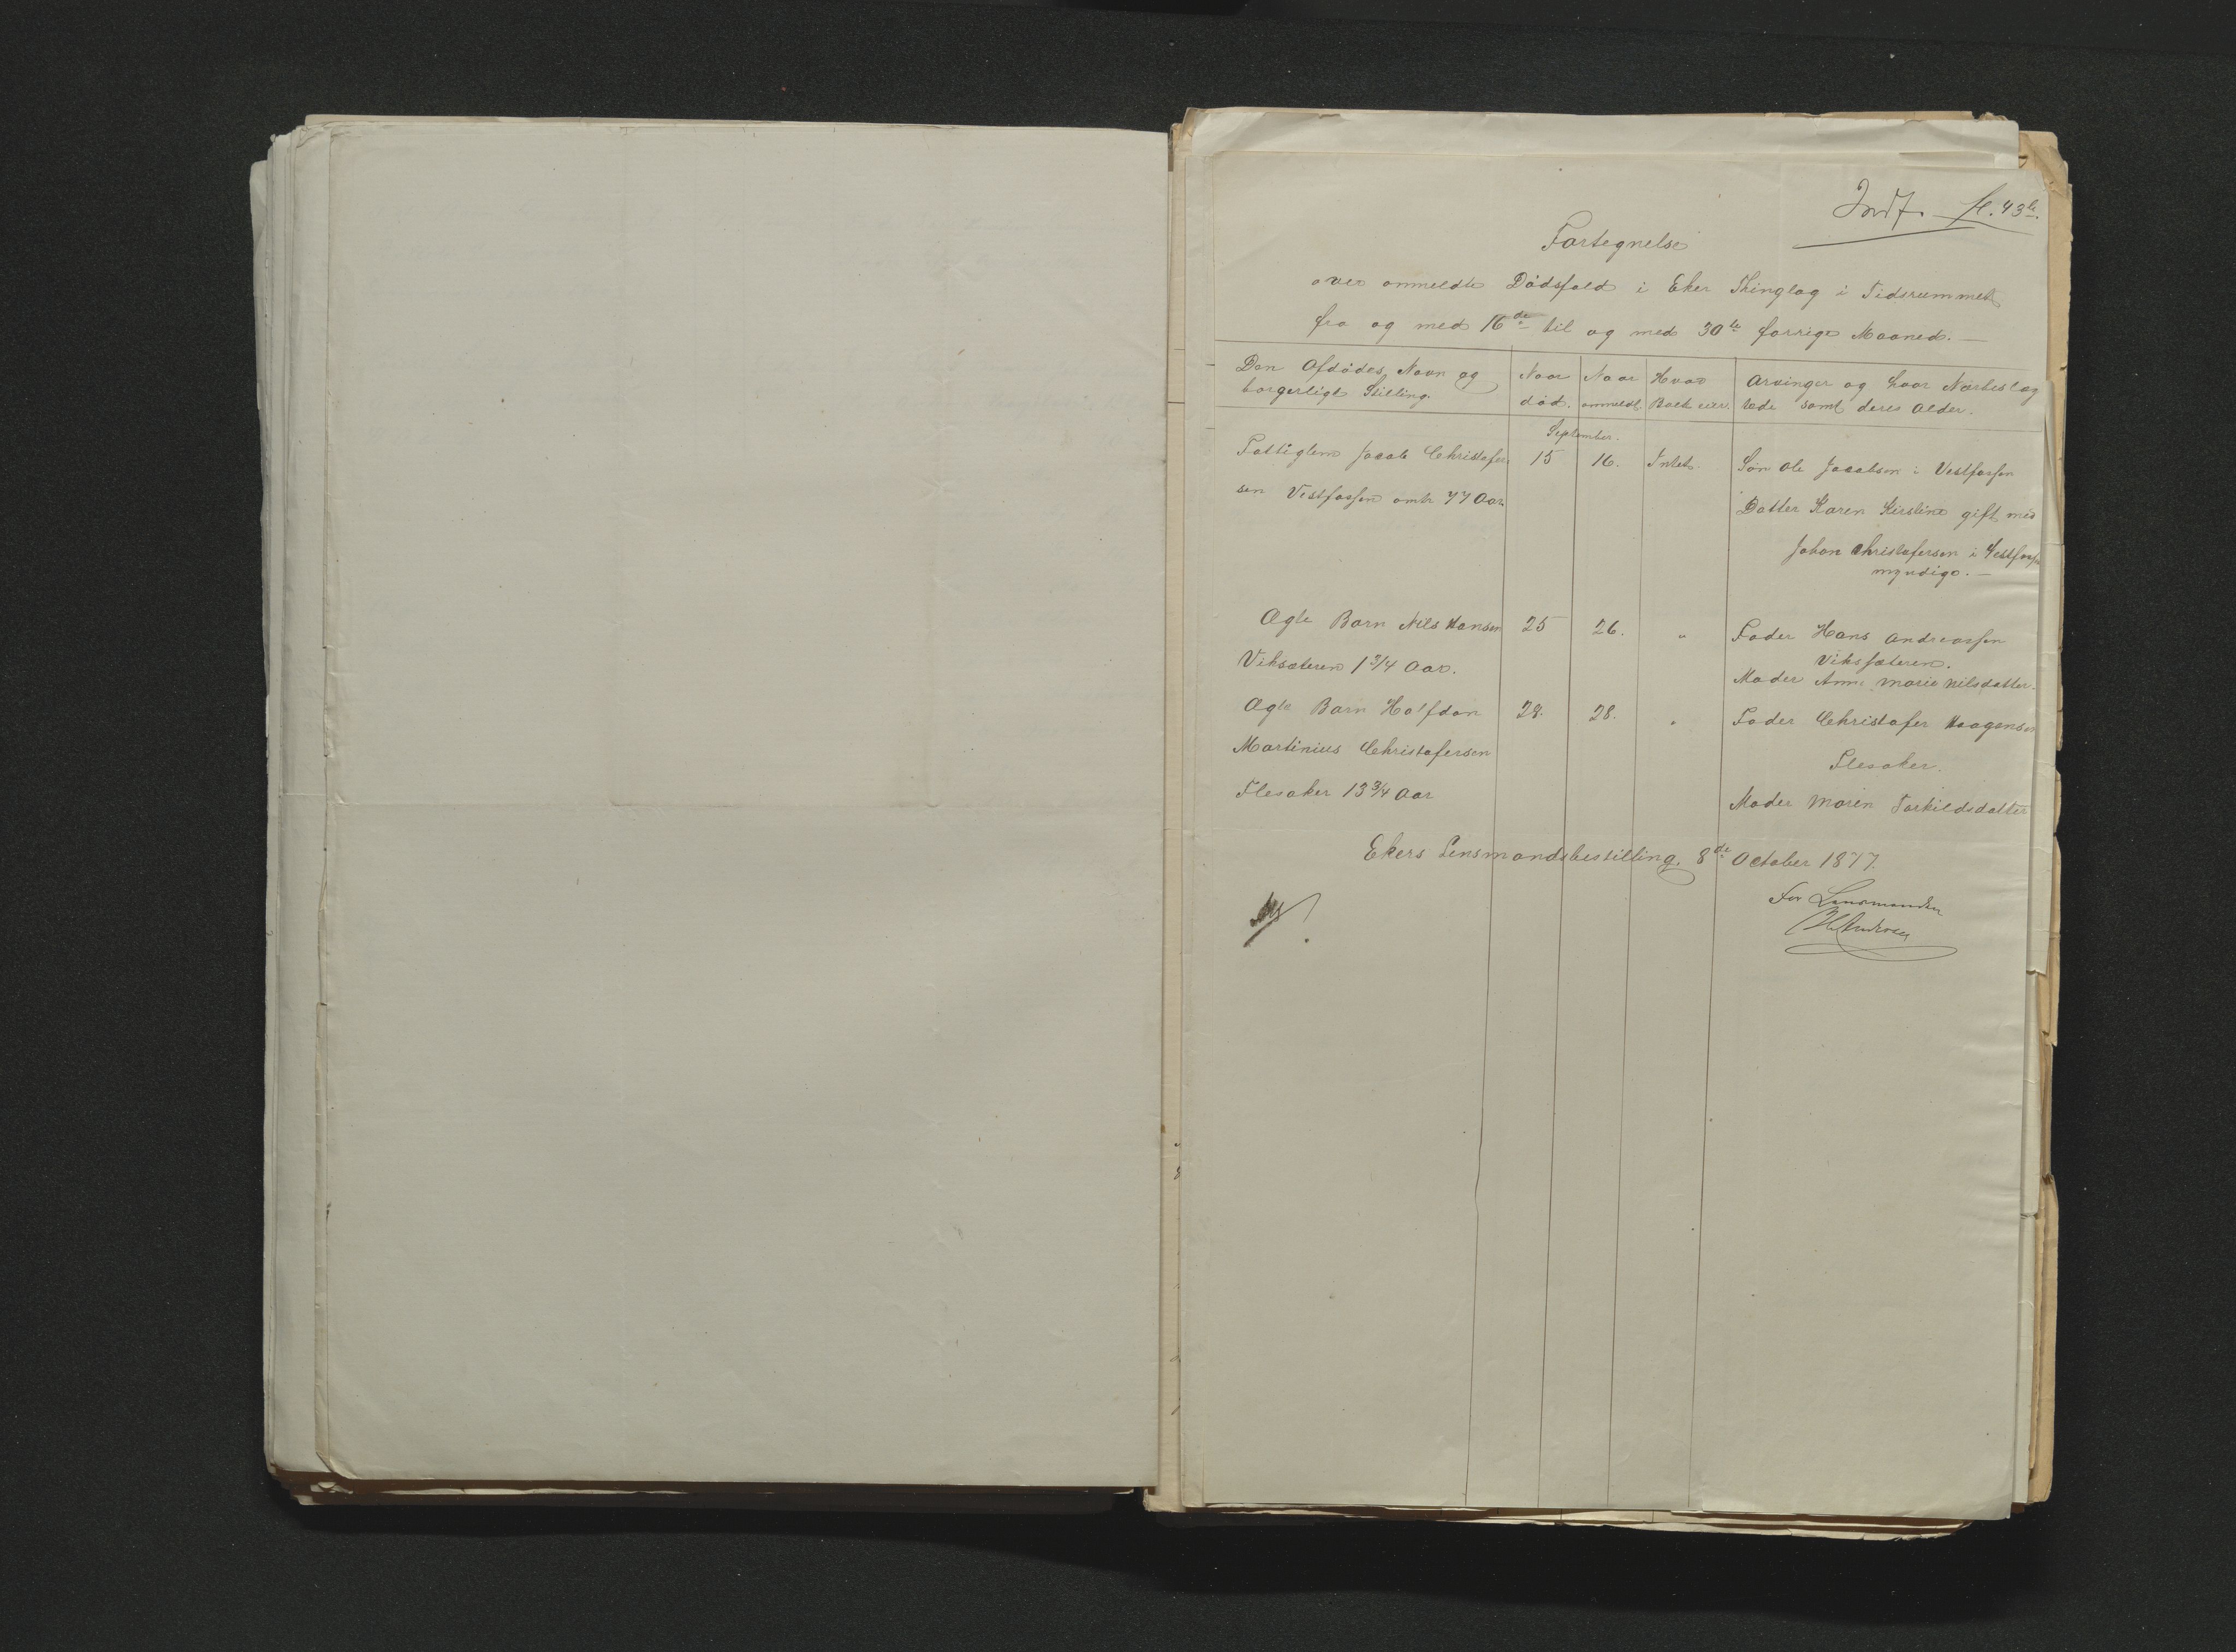 Indf. fl. 43b.
Fortegnelse
over anmeldte Dødsfald i Eker Thinglag i Tidsrummet
fra og med 16de til og med 30te forrige Maaned. —
Den Afdødes Navn og Naar Naar Hvad Arvinger og hvor Nærbeslæg
borgerlige Stilling. død. anmeldt. Boet eier. tede samt deres Alder.
September.
Fattiglem Jacob Christofer 15 16. Intet. Søn Ole Jacobsen i Vestfossen
sen Vestfossen omtr 77 Aar.
Datter Karen Kirstine gift med
Johan Christofersen i Vestfossen
myndige. —
Ægte Barn Nils Hansen 25 26. " Fader Hans Andreassen
Viksæteren 1 3/4 Aar. Vikssæteren.
Moder Anne Marie Nilsdatter.
Ægte Barn Halfdan 28. 28. " Fader Christofer Haagensen
Martinius Christofersen
Flesaker.
Flesaker 13 3/4 Aar Moder Maren Torkildsdatter
Ekers Lensmandsbestilling, 8de October 1877.
For Lensmanden